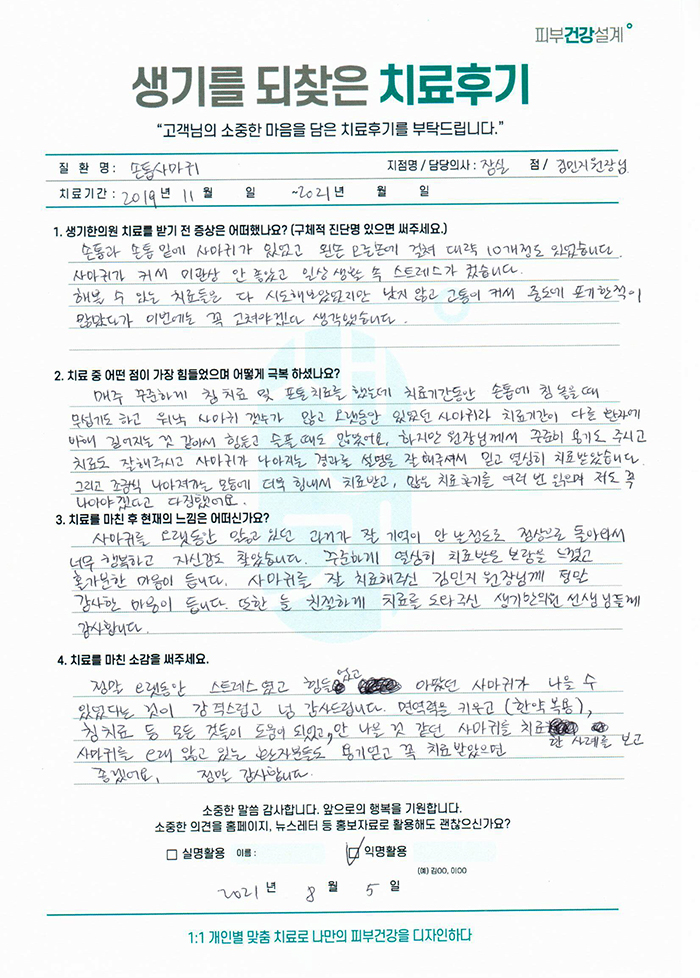 피부건강설계
생기를 되찾은 치료후기
"고객님의 소중한 마음을 담은 치료후기를 부탁드립니다."
질 환 명: 손톱사마귀 지점명 / 담당의사 : 잠실 점 / 김민지원장님
치료기간 : 2019년 11월 일 ~2021년 월 일
1. 생기한의원 치료를 받기 전 증상은 어떠했나요? (구체적 진단명 있으면 써주세요.)
손톱과 손톱 밑에 사마귀가 있었고 왼손 오른손에 걸쳐 대략 10개정도 있었습니다.
사마귀가 커서 미관상 안 좋았고 일상 생활 속 스트레스가 컸습니다.
해볼 수 있는 치료들은 다 시도해보았었지만 낫지 않고 고통이 커서 중도에 포기한적이
많았다가 이번에는 꼭 고쳐야겠다 생각했습니다.
2. 치료 중 어떤 점이 가장 힘들었으며 어떻게 극복 하셨나요?
매주 꾸준하게 침치료 및 포톤치료를 했는데 치료기간동안 손톱에 침 놓을때
무섭기도 하고 워낙 사마귀 갯수가 많고 오랫동안 있었던 사마귀라 치료기간이 다른 환자에
비해 길어지는 것 같아서 힘들고 슬플 때도 많았어요. 하지만 원장님께서 꾸준히 용기도 주시고
치료도 잘해주시고 사마귀가 나아지는 경과를 설명을 잘 해주셔서 믿고 열심히 치료받았습니다.
그리고 조금씩 나아져가는 모습에 더욱 힘내서 치료받고, 많은 치료후기를 여러 번 읽으며 저도 꼭
나아야겠다고 다짐했어요.
3. 치료를 마친 후 현재의 느낌은 어떠신가요?
사마귀를 오랫동안 앓고 있던 과거가 잘 기억이 안 날정도로 정상으로 돌아와서
너무 행복하고 자신감도 찾았습니다. 꾸준하게 열심히 치료받은 보람을 느꼈고
홀가분한 마음이 듭니다. 사마귀를 잘 치료해주신 김민지 원장님께 정말
감사한 마음이 듭니다. 또한 늘 친절하게 치료를 도와주신 생기한의원 선생님들께
감사합니다.
4. 치료를 마친 소감을 써주세요.
정말 오랫동안 스트레스였고 힘들었고 아팠던 사마귀가 나을 수
있었다는 것이 감격스럽고 넘 감사드립니다. 면역력을 키우고 (한약 복용),
침치료 등 모든 것들이 도움이 되었고, 안 나을 것 같던 사마귀를 치료한 사례를 보고
사마귀를 오래 앓고 있는 환자분들도 용기얻고 꼭 치료받았으면
좋겠어요. 정말 감사합니다.
소중한 말씀 감사합니다. 앞으로의 행복을 기원합니다.
소중한 의견을 홈페이지, 뉴스레터 등 홍보자료로 활용해도 괜찮으신가요?
□ 실명활용 이름 : ☑ 익명활용
(예) 김OO, 이OO
2021년 8월 5일
1:1 개인별 맞춤 치료로 나만의 피부건강을 디자인하다